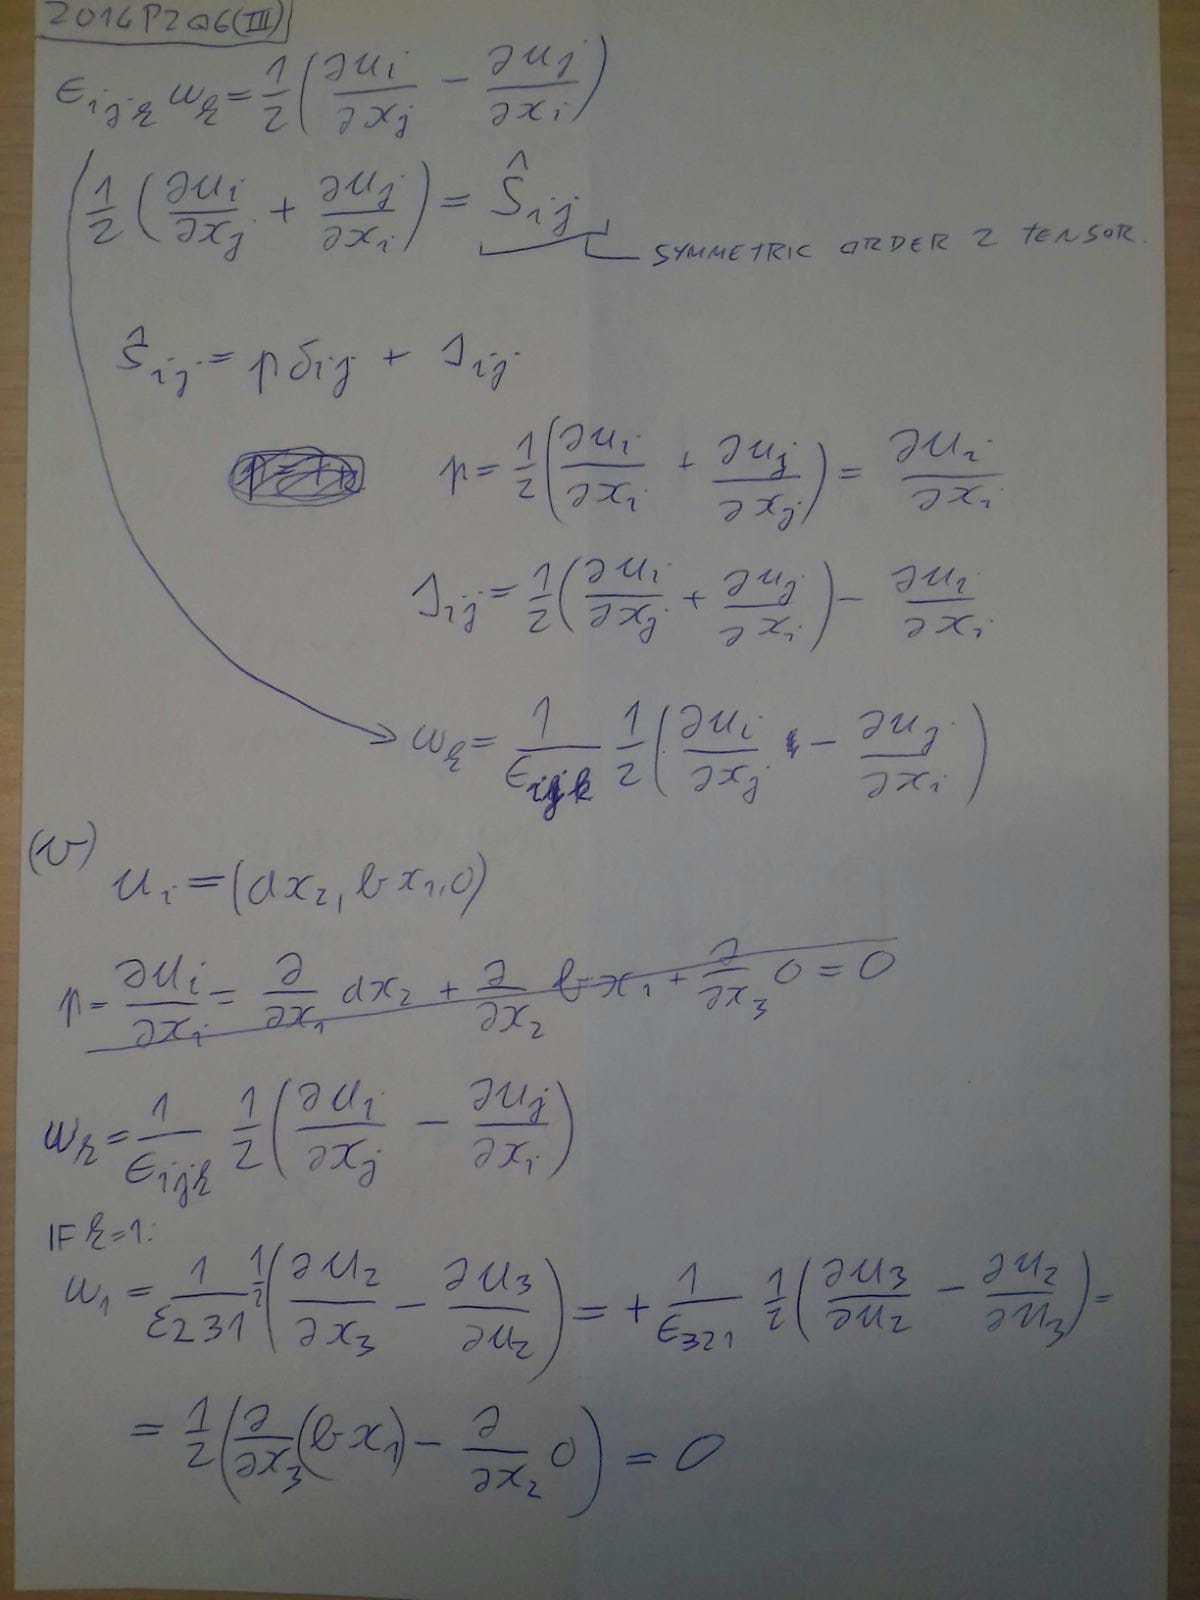 2014P2Q6(III)
ϵ_{ijk} w_k = 1/2 (∂u_i/∂x_j − ∂u_j/∂x_i)
1/2 (∂u_i/∂x_j + ∂u_j/∂x_i) = Ŝ_{ij}
SYMMETRIC ORDER 2 TENSOR.
Ŝ_{ij} = p δ_{ij} + s_{ij}
p = 1/2 (∂u_i/∂x_i + ∂u_j/∂x_j) = ∂u_i/∂x_i
s_{ij} = 1/2 (∂u_i/∂x_j + ∂u_j/∂x_i) − ∂u_i/∂x_i
w_k = 1/ϵ_{ijk} 1/2 (∂u_i/∂x_j − ∂u_j/∂x_i)
(v)
u_i = (ax_2, bx_1, 0)
p = ∂u_i/∂x_i = ∂/∂x_1 ax_2 + ∂/∂x_2 bx_1 + ∂/∂x_3 0 = 0
w_k = 1/ϵ_{ijk} 1/2 (∂u_i/∂x_j − ∂u_j/∂x_i)
IF k=1:
w_1 = 1/ϵ_{231} 1/2 (∂u_2/∂x_3 − ∂u_3/∂u_2) = + 1/ϵ_{321} 1/2 (∂u_3/∂u_2 − ∂u_2/∂u_3) =
= 1/2 (∂/∂x_3 (bx_1) − ∂/∂x_2 0) = 0